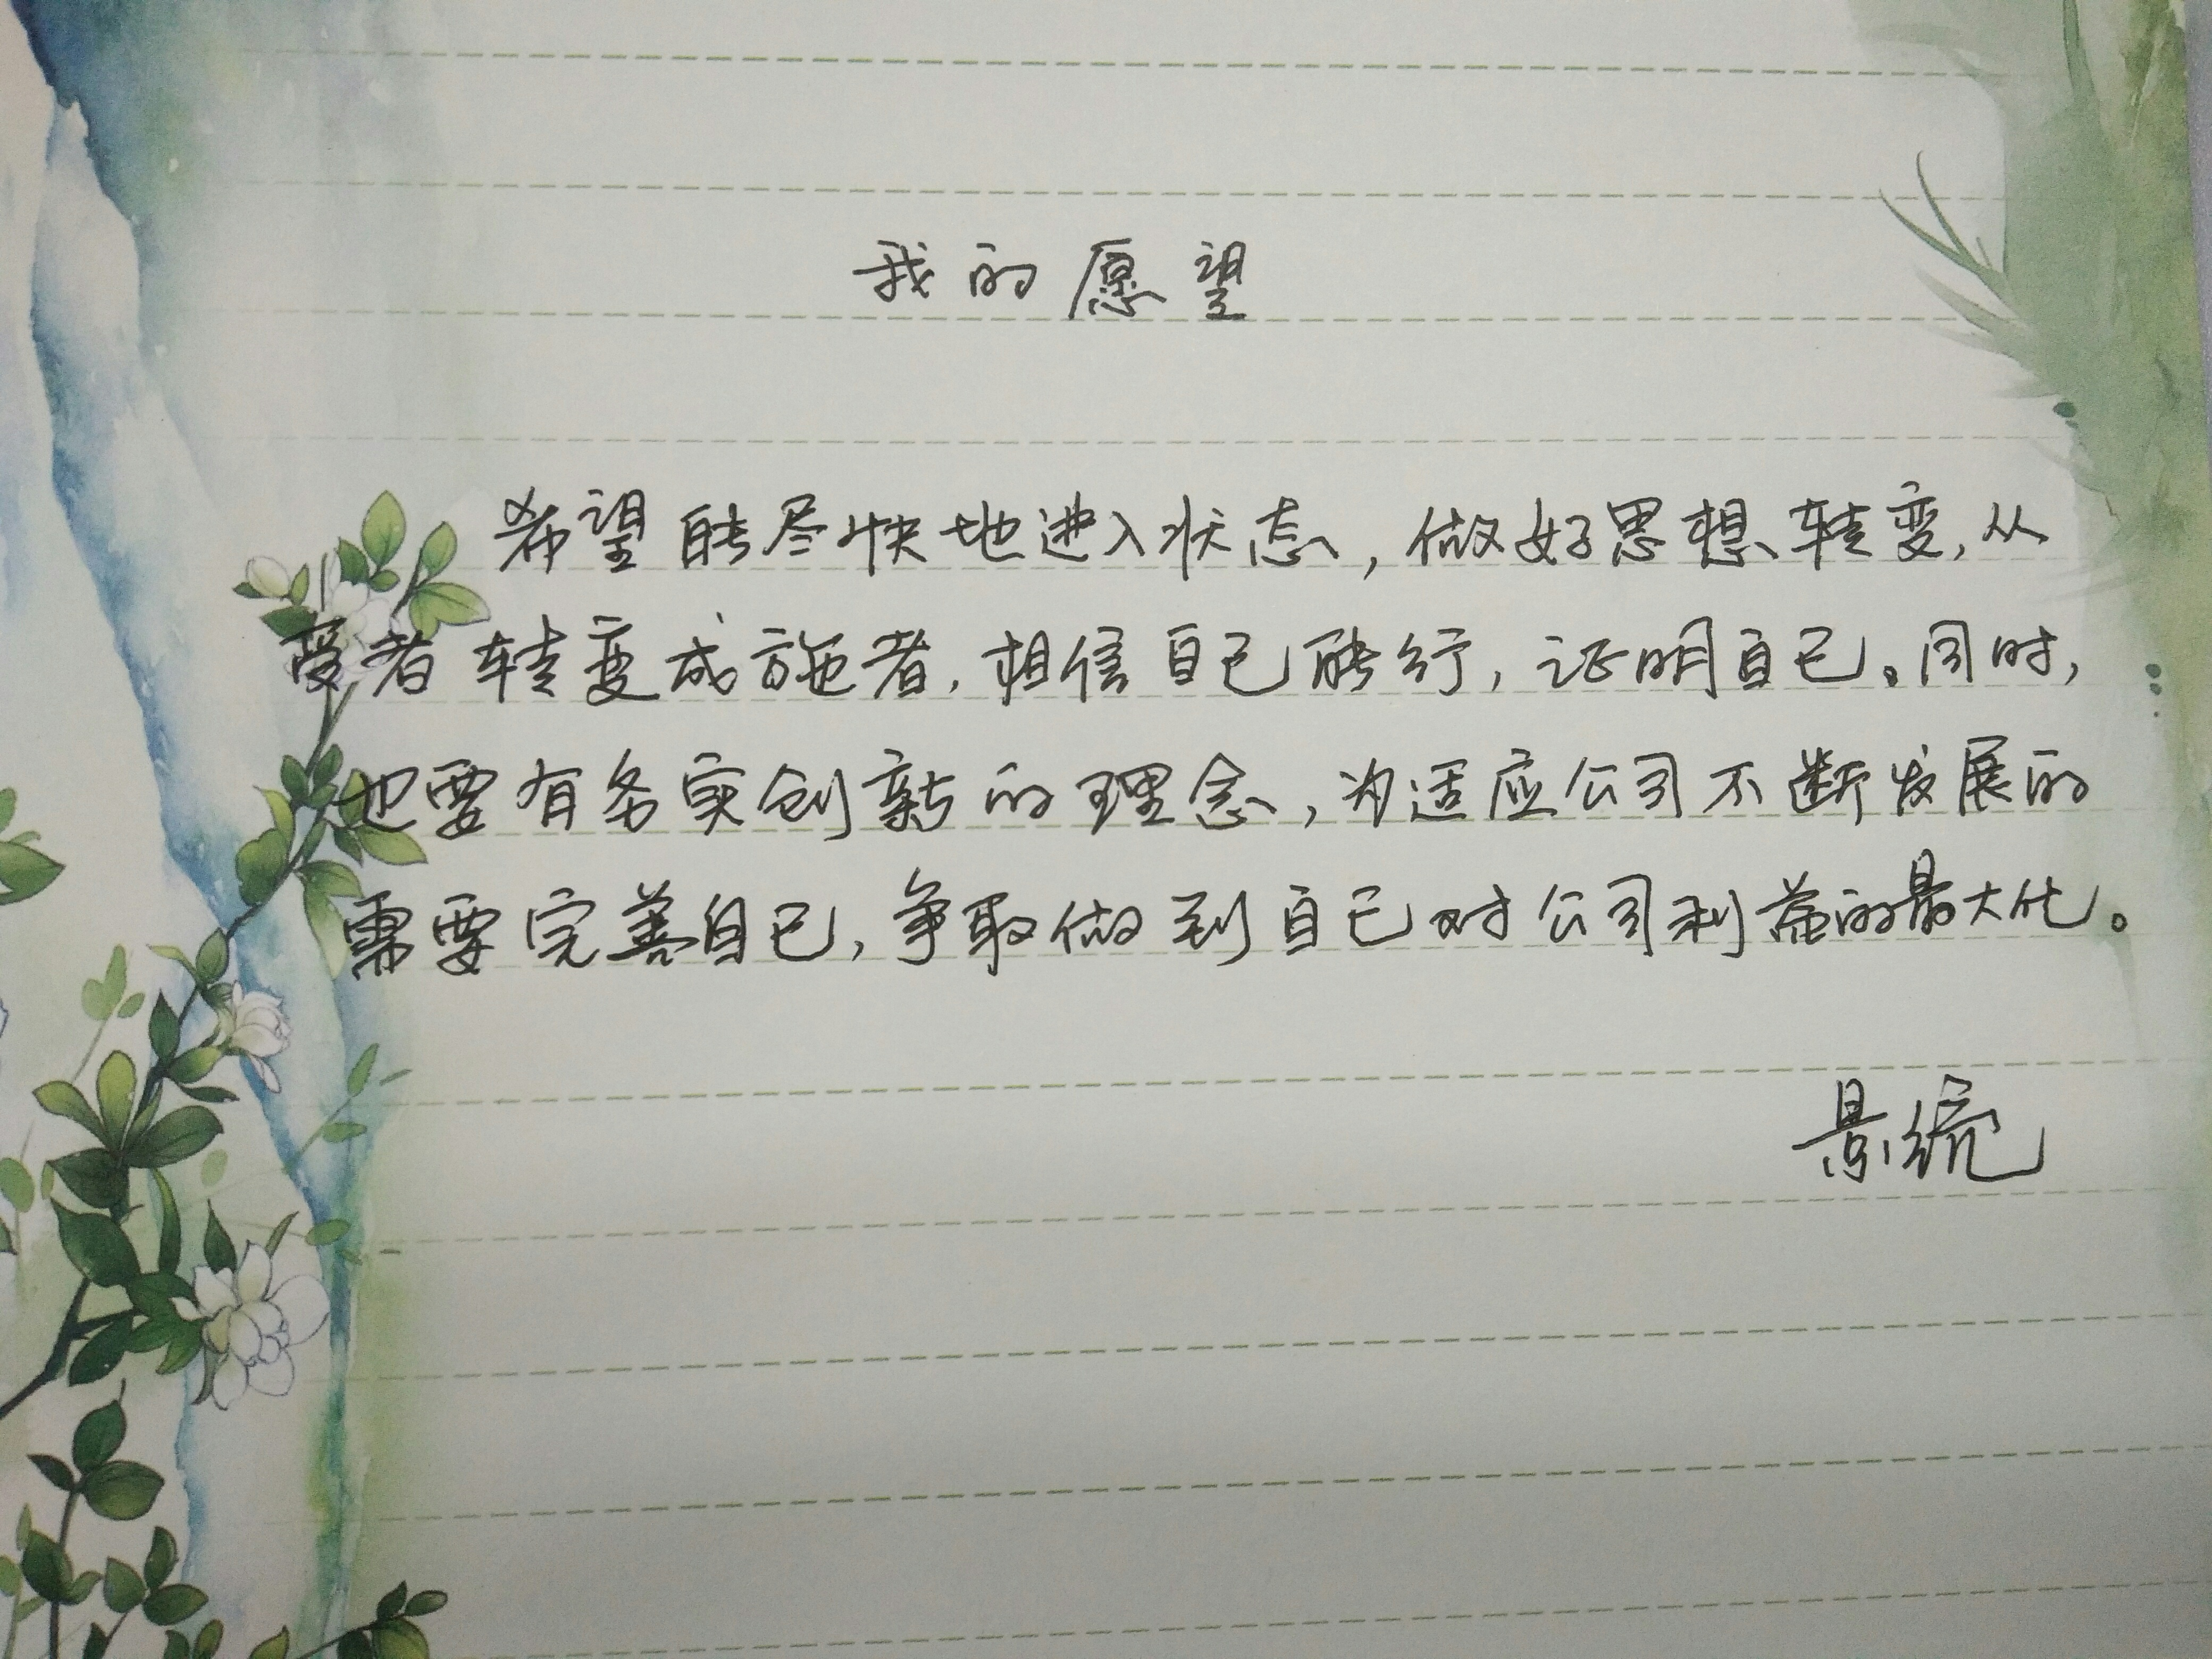 我的愿望
希望能尽快地进入状态,做好思想转变,从
受者转变成施者,相信自己能行,证明自己。同时,
也要有务实创新的理念,为适应公司不断发展的
需要完善自己,争取做到自己对公司利益的最大化。
景统